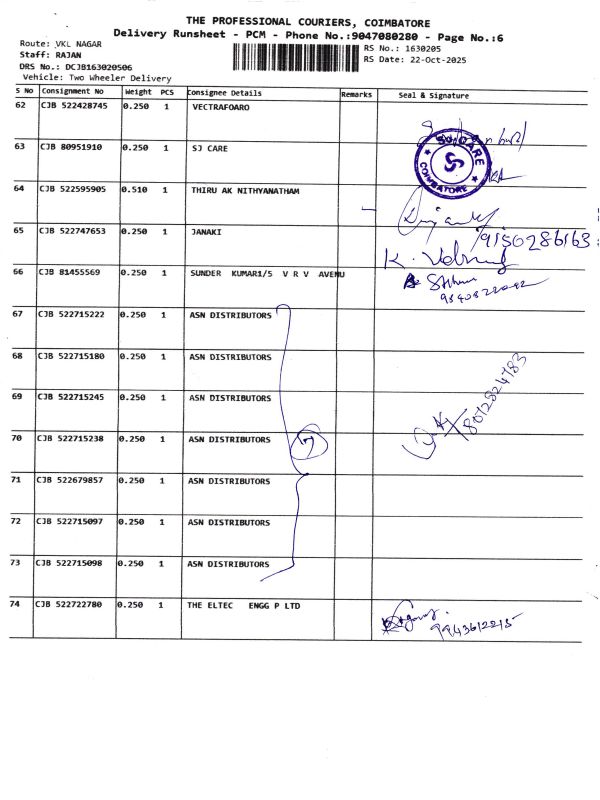 THE PROFESSIONAL COURIERS, COIMBATORE
Delivery Runsheet - PCM - Phone No.:9047080280 - Page No.:6
Route: VKL NAGAR
RS No.: 1630205
Staff: RAJAN
RS Date: 22-Oct-2025
DRS No.: DCJB163020506
Vehicle: Two Wheeler Delivery
S No Consignment No Weight PCS Consignee Details Remarks Seal & Signature
62 CJB 522428745 0.250 1 VECTRAFOARO
63 CJB 80951910 0.250 1 SJ CARE
SJ CARE COIMBATORE
64 CJB 522595905 0.510 1 THIRU AK NITHYANATHAM
65 CJB 522747653 0.250 1 JANAKI
9150286163
66 CJB 81455569 0.250 1 SUNDER KUMAR1/5 V R V AVENU
67 CJB 522715222 0.250 1 ASN DISTRIBUTORS
68 CJB 522715180 0.250 1 ASN DISTRIBUTORS
69 CJB 522715245 0.250 1 ASN DISTRIBUTORS
8012824783
70 CJB 522715238 0.250 1 ASN DISTRIBUTORS 7
71 CJB 522679857 0.250 1 ASN DISTRIBUTORS
72 CJB 522715097 0.250 1 ASN DISTRIBUTORS
73 CJB 522715098 0.250 1 ASN DISTRIBUTORS
74 CJB 522722780 0.250 1 THE ELTEC ENGG P LTD
9943612215